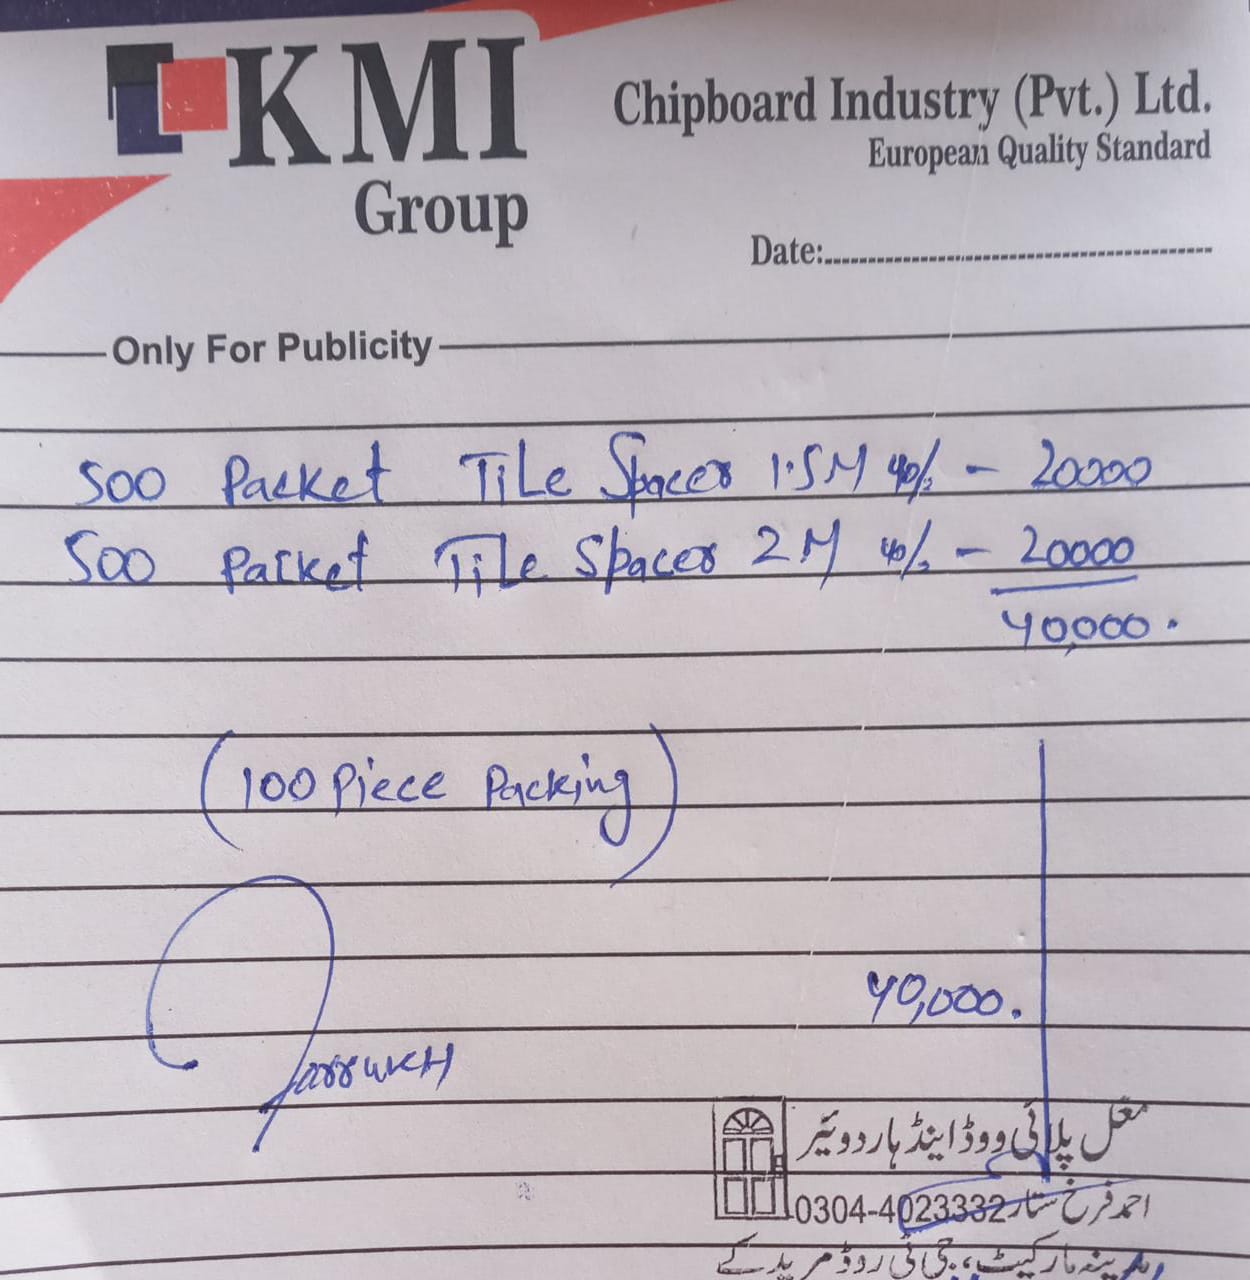 KMI
Group
Chipboard Industry (Pvt.) Ltd.
European Quality Standard
Date:
Only For Publicity
500 Packet Tile Spacer 1.5M 40/- - 20000
500 Packet Tile Spacer 2M 40/- - 20000
40,000.
(100 Piece Packing)
40,000.
FarrukH
مغل پلائی ووڈ اینڈ ہارڈوئیر
احمد فرخ ستار 0304-4023332
مدینہ مارکیٹ، جی ٹی روڈ مریدکے